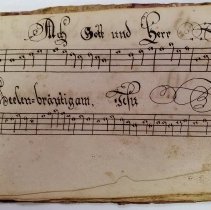 Ach Gott und Herr
Seelen-bräutigam. Jesu